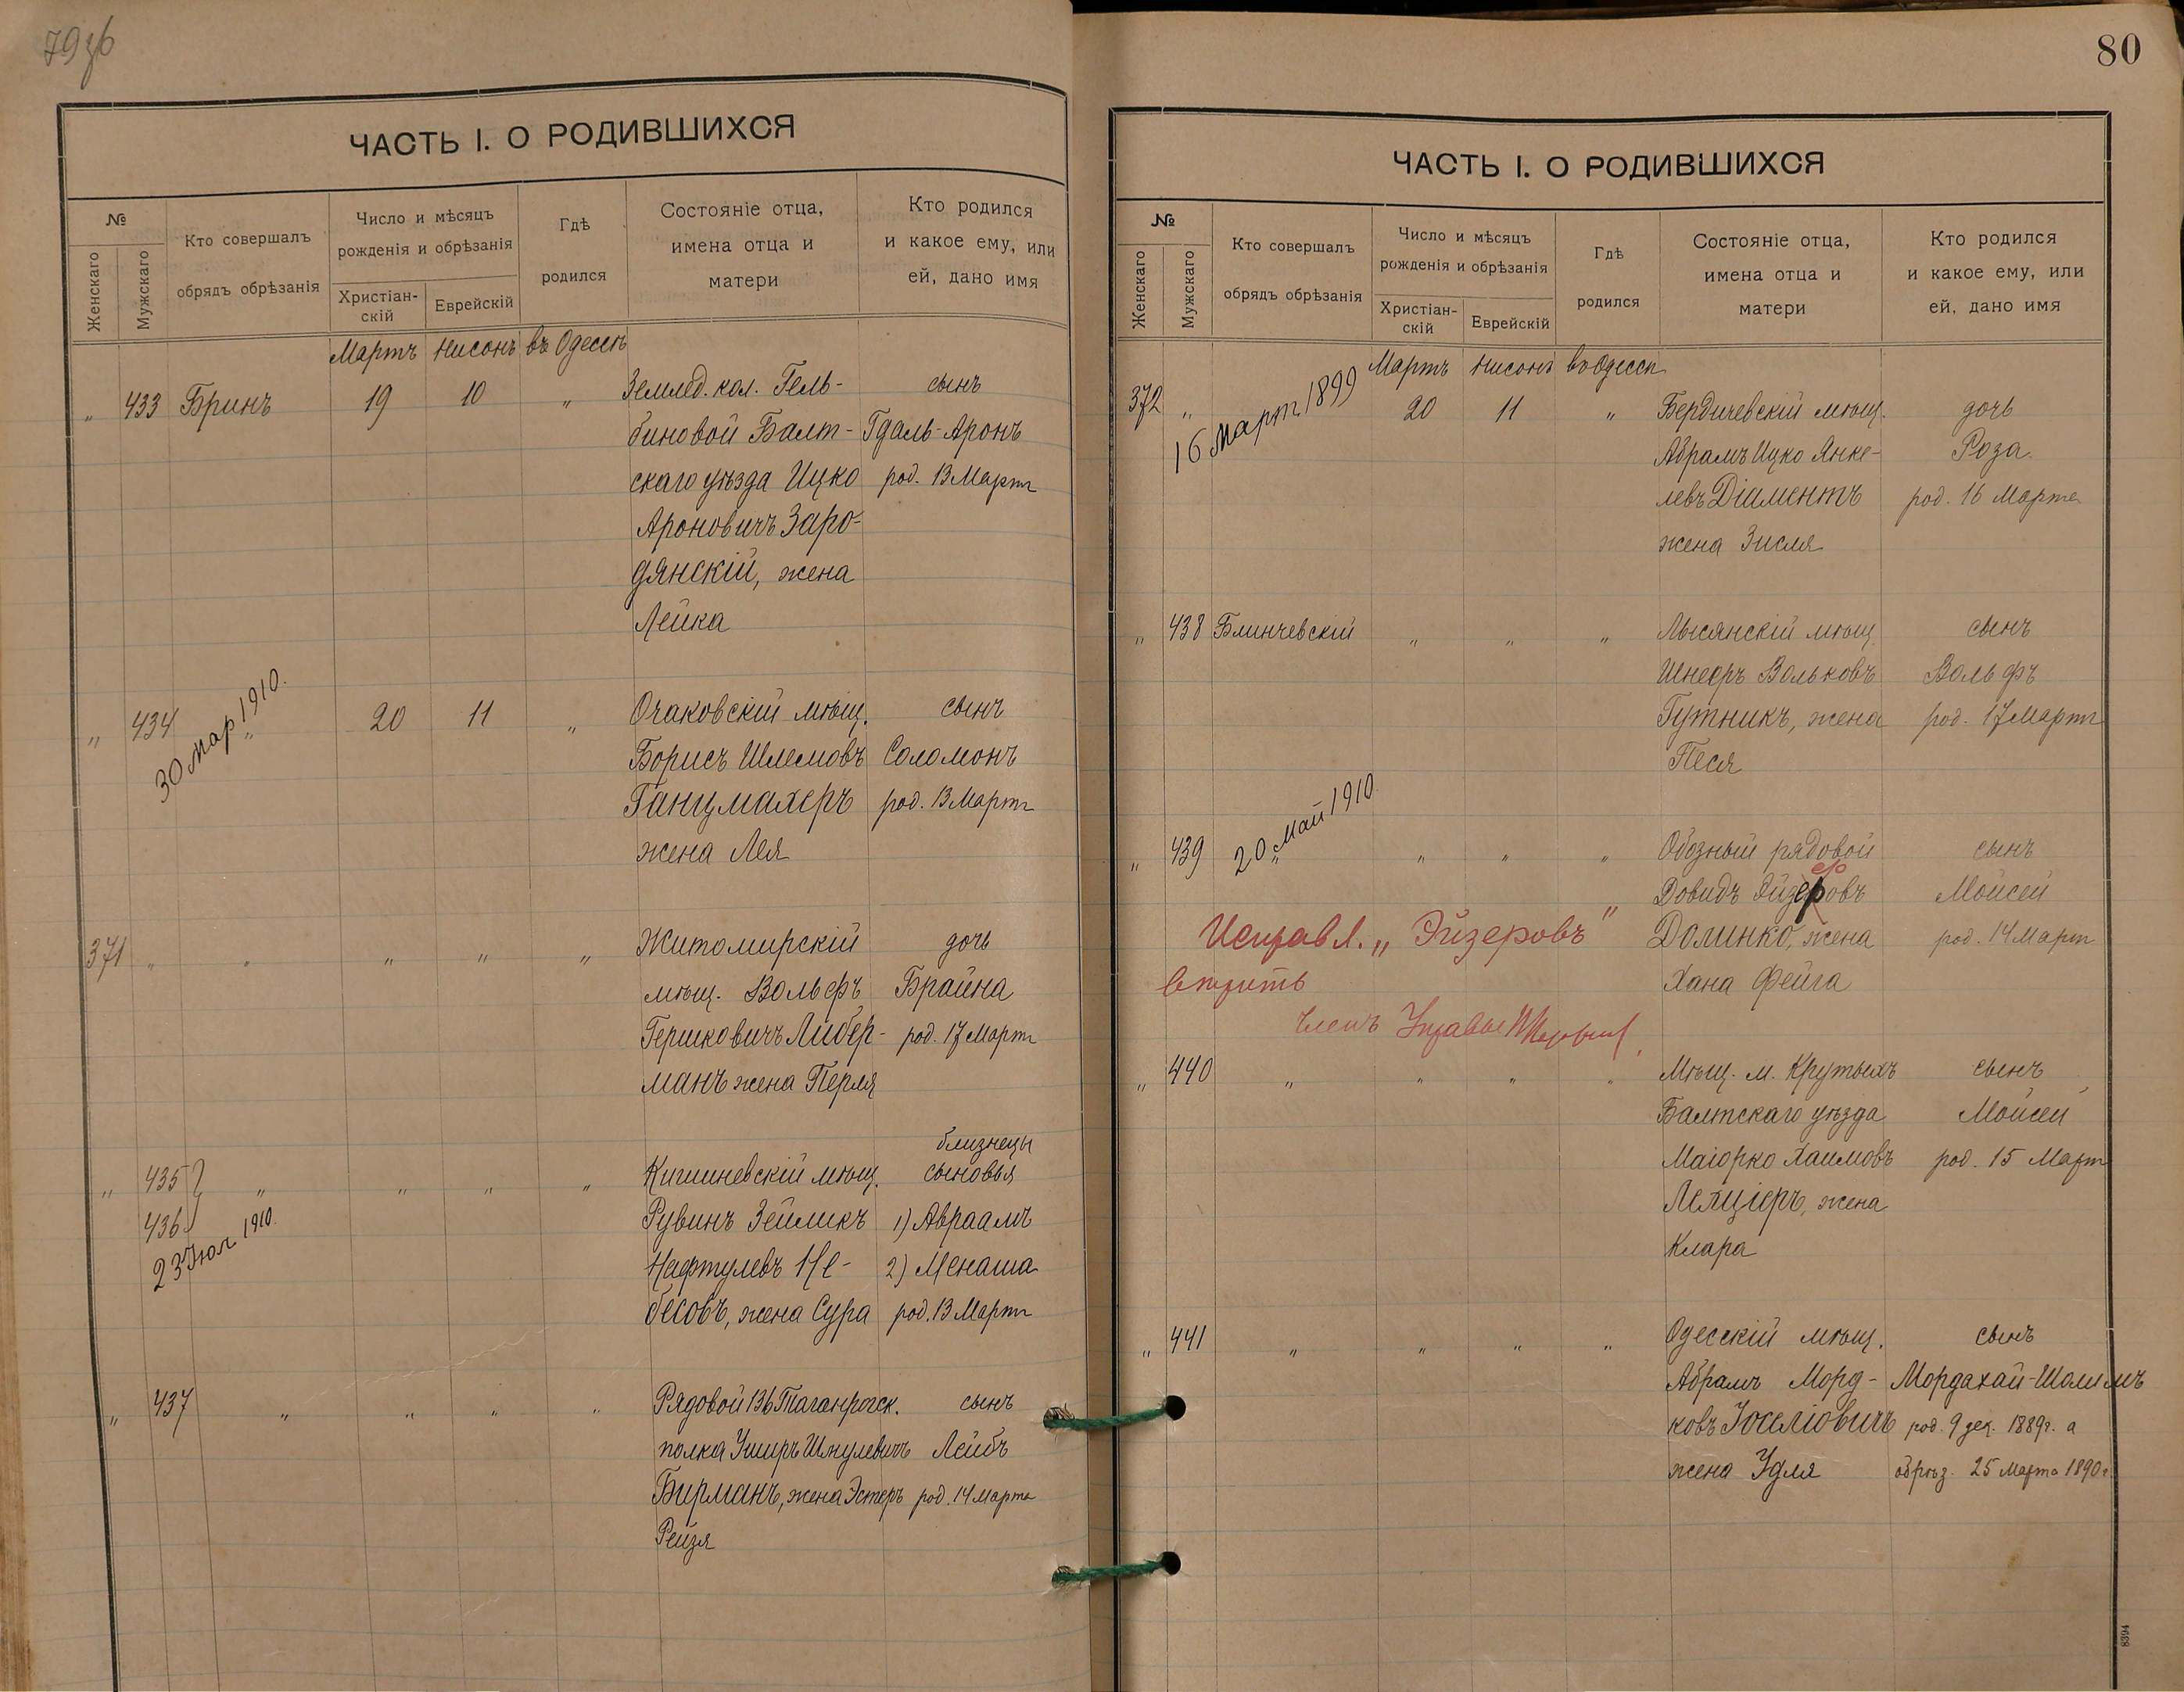 79 об
ЧАСТЬ I. О РОДИВШИХСЯ
№
Женскаго
Мужскаго
Кто совершалъ
обрядъ обрѣзанія
Число и мѣсяцъ
рожденія и обрѣзанія
Христіан-
скій
Еврейскій
Гдѣ
родился
Состояніе отца,
имена отца и
матери
Кто родился
и какое ему, или
ей, дано имя
Мартъ Нисонъ въ Одессѣ
„ 433 Бринъ 19 10 „ Землед. кол. Гель- сынъ
биновой Балт- Гдаль-Аронъ
скаго уѣзда Ицко род. 13 Март
Ароновичъ Заро-
дянскій, жена
Лейка
„ 434 „ 20 11 „ Очаковскій мѣщ. сынъ
30 мар 1910.
Борисъ Шлемовъ Соломонъ
Ганцмахеръ род. 13 Март
жена Лея
371 „ „ „ „ „ Житомирскій дочь
мѣщ. Вольфъ Брайна
Гершковичъ Либер- род. 17 Март
манъ жена Перля
близнецы
„ 435 „ „ „ „ Кишиневскій мѣщ. сыновья
436 Рувинъ Зейликъ 1) Авраамъ
23 Июл 1910.
Нафтулевъ Не- 2) Менаша
бесовъ, жена Сура род. 13 Март
„ 437 „ „ „ „ Рядовой 136 Таганрогск. сынъ
полка Уширъ Шмулевичъ Лейбъ
Бирманъ, жена Эстеръ род. 14 Марта
Рейзя
80
ЧАСТЬ I. О РОДИВШИХСЯ
№
Женскаго
Мужскаго
Кто совершалъ
обрядъ обрѣзанія
Число и мѣсяцъ
рожденія и обрѣзанія
Христіан-
скій
Еврейскій
Гдѣ
родился
Состояніе отца,
имена отца и
матери
Кто родился
и какое ему, или
ей, дано имя
Мартъ Нисонъ въ Одессѣ
372 „ 20 11 „ Бердичевскій мѣщ. дочь
16 Март 1899
Абрамъ Ицко Янке- Роза
левъ Діаментъ род. 16 Марта
жена Зисля
„ 438 Блинчевскій „ „ „ Лысянскій мѣщ. сынъ
Шнееръ Вольковъ Вольфъ
Гутникъ, жена род. 17 Март
Песя
„ 439 „ „ „ „ Обозный рядовой сынъ
20 Май 1910.
ер
Довидъ Эйзеровъ Мойсей
Исправл. „Эйзеровъ" Долинко, жена род. 14 Март
вѣрить Хана Фейга
Членъ Управы
„ 440 „ „ „ „ Мѣщ. м. Крутыхъ сынъ
Балтскаго уѣзда Мойсей
Маіорко Хаимовъ род. 15 Март
Лехціеръ, жена
Клара
„ 441 „ „ „ „ Одесскій мѣщ. сынъ
Абрамъ Морд- Мордахай-Шолимъ
ковъ Іоселіовичъ род. 9 дек. 1889г. а
жена Удля обрѣз. 25 Марта 1890 г.
8394